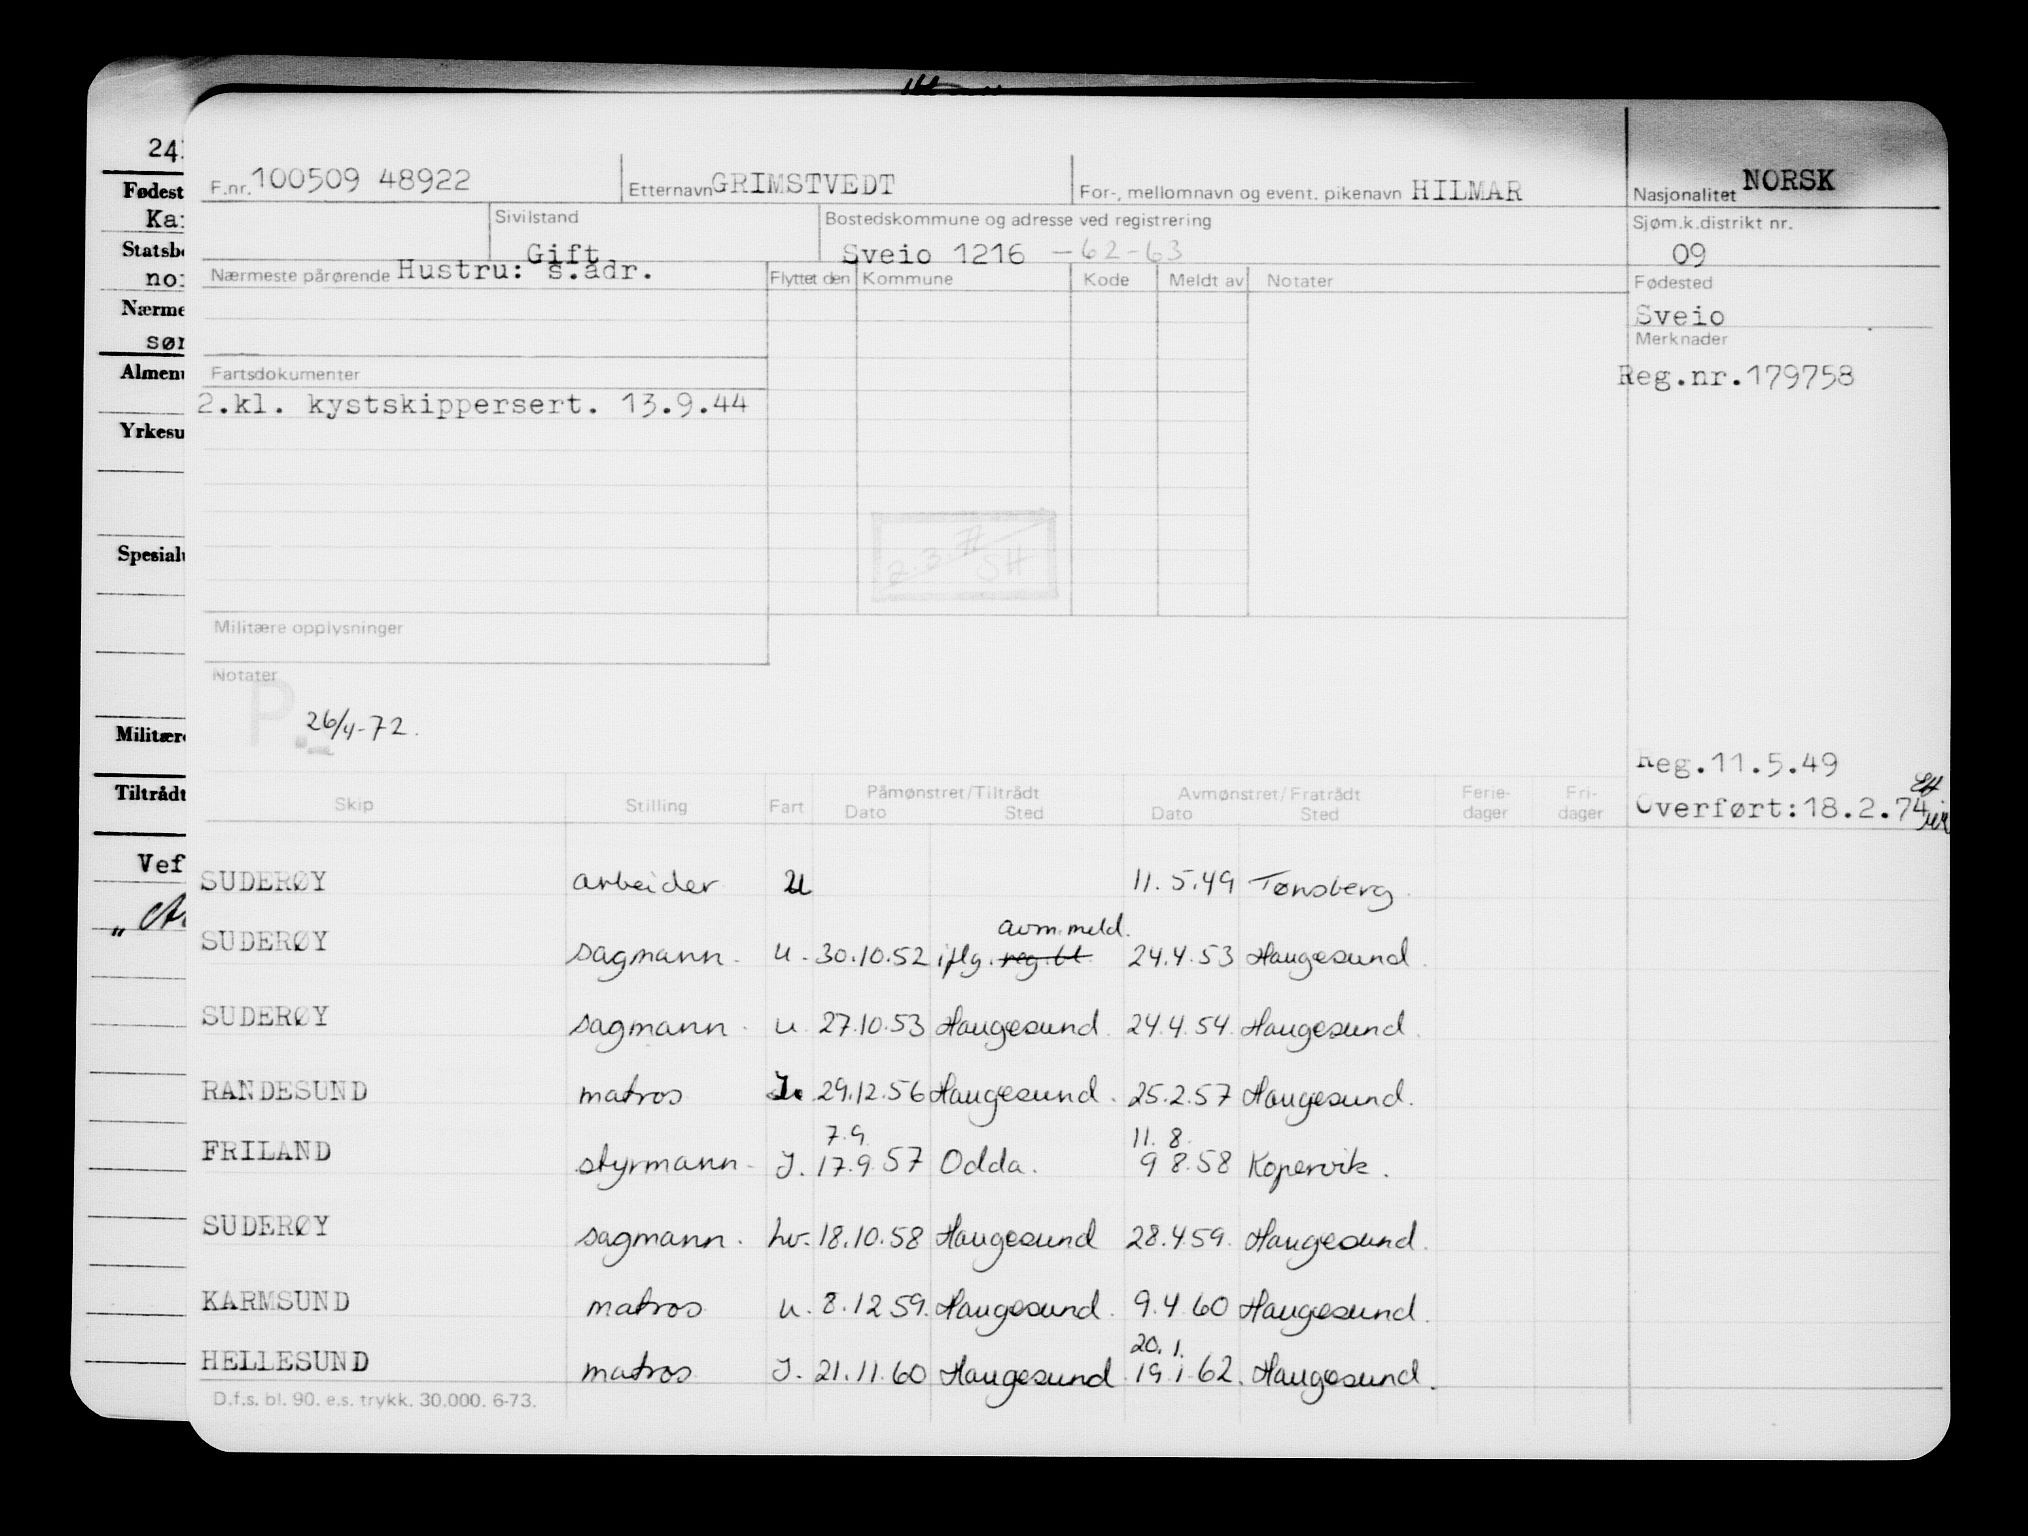 24
F.nr. 100509 48922 Etternavn GRIMSTVEDT For-, mellomnavn og event. pikenavn HILMAR Nasjonalitet NORSK
Sivilstand Gift Bostedskommune og adresse ved registrering Sveio 1216 -62-63 Sjøm.k.distrikt nr. 09
Nærmeste pårørende Hustru: s.adr. Flyttet den Kommune Kode Meldt av Notater Fødested
Sveio
Merknader
Reg.nr.179758
Fartsdokumenter
2.kl. kystskippersert. 13.9.44
SH
Militære opplysninger
Notater
P
26/4-72.
Reg.11.5.49
Overført:18.2.74
Skip Stilling Fart Påmønstret/Tiltrådt Dato Sted Avmønstret/Fratrådt Dato Sted Ferie-dager Fri-dager
SUDERØY arbeider U 11.5.49 Tønsberg.
avm.meld.
SUDERØY sagmann. u. 30.10.52 iflg. reg.bl. 24.4.53 Haugesund.
SUDERØY sagmann. u. 27.10.53 Haugesund. 24.4.54 Haugesund.
RANDESUND matros J. 29.12.56 Haugesund. 25.2.57 Haugesund.
7.9. 11. 8.
FRILAND styrmann. J. 17.9.57 Odda. 9 8.58 Kopervik.
SUDERØY sagmann. hv. 18.10.58 Haugesund 28.4.59. Haugesund.
KARMSUND matros u. 8.12 59. Haugesund. 9.4.60 Haugesund.
20. 1.
HELLESUND matros J. 21.11.60 Haugesund. 19.1.62. Haugesund.
D.f.s. bl. 90. e.s. trykk. 30.000. 6-73.
Fødest
Ka
Statsb
no
Nærme
søn
Almen
Yrkesu
Spesial
Militær
Tiltrådt
Vef